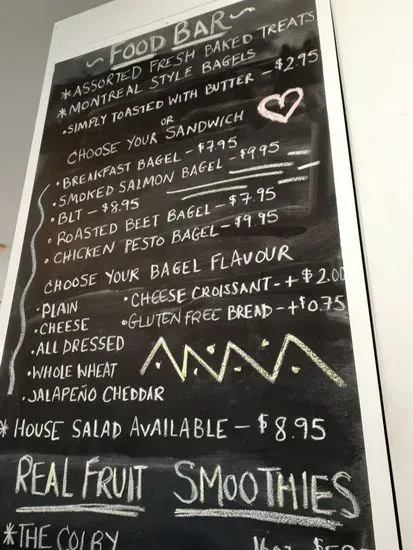 ~ FOOD BAR ~
* ASSORTED FRESH BAKED TREATS
* MONTREAL STYLE BAGELS
• SIMPLY TOASTED WITH BUTTER - $2.95
OR
CHOOSE YOUR SANDWICH
• BREAKFAST BAGEL - $7.95
• SMOKED SALMON BAGEL - $9.95
• BLT - $8.95
• ROASTED BEET BAGEL - $7.95
• CHICKEN PESTO BAGEL - $9.95
CHOOSE YOUR BAGEL FLAVOUR
• PLAIN
• CHEESE
• ALL DRESSED
• WHOLE WHEAT
• JALAPEÑO CHEDDAR
• CHEESE CROISSANT - + $2.00
• GLUTEN FREE BREAD - + $0.75
* HOUSE SALAD AVAILABLE - $8.95
REAL FRUIT SMOOTHIES
* THE COLBY